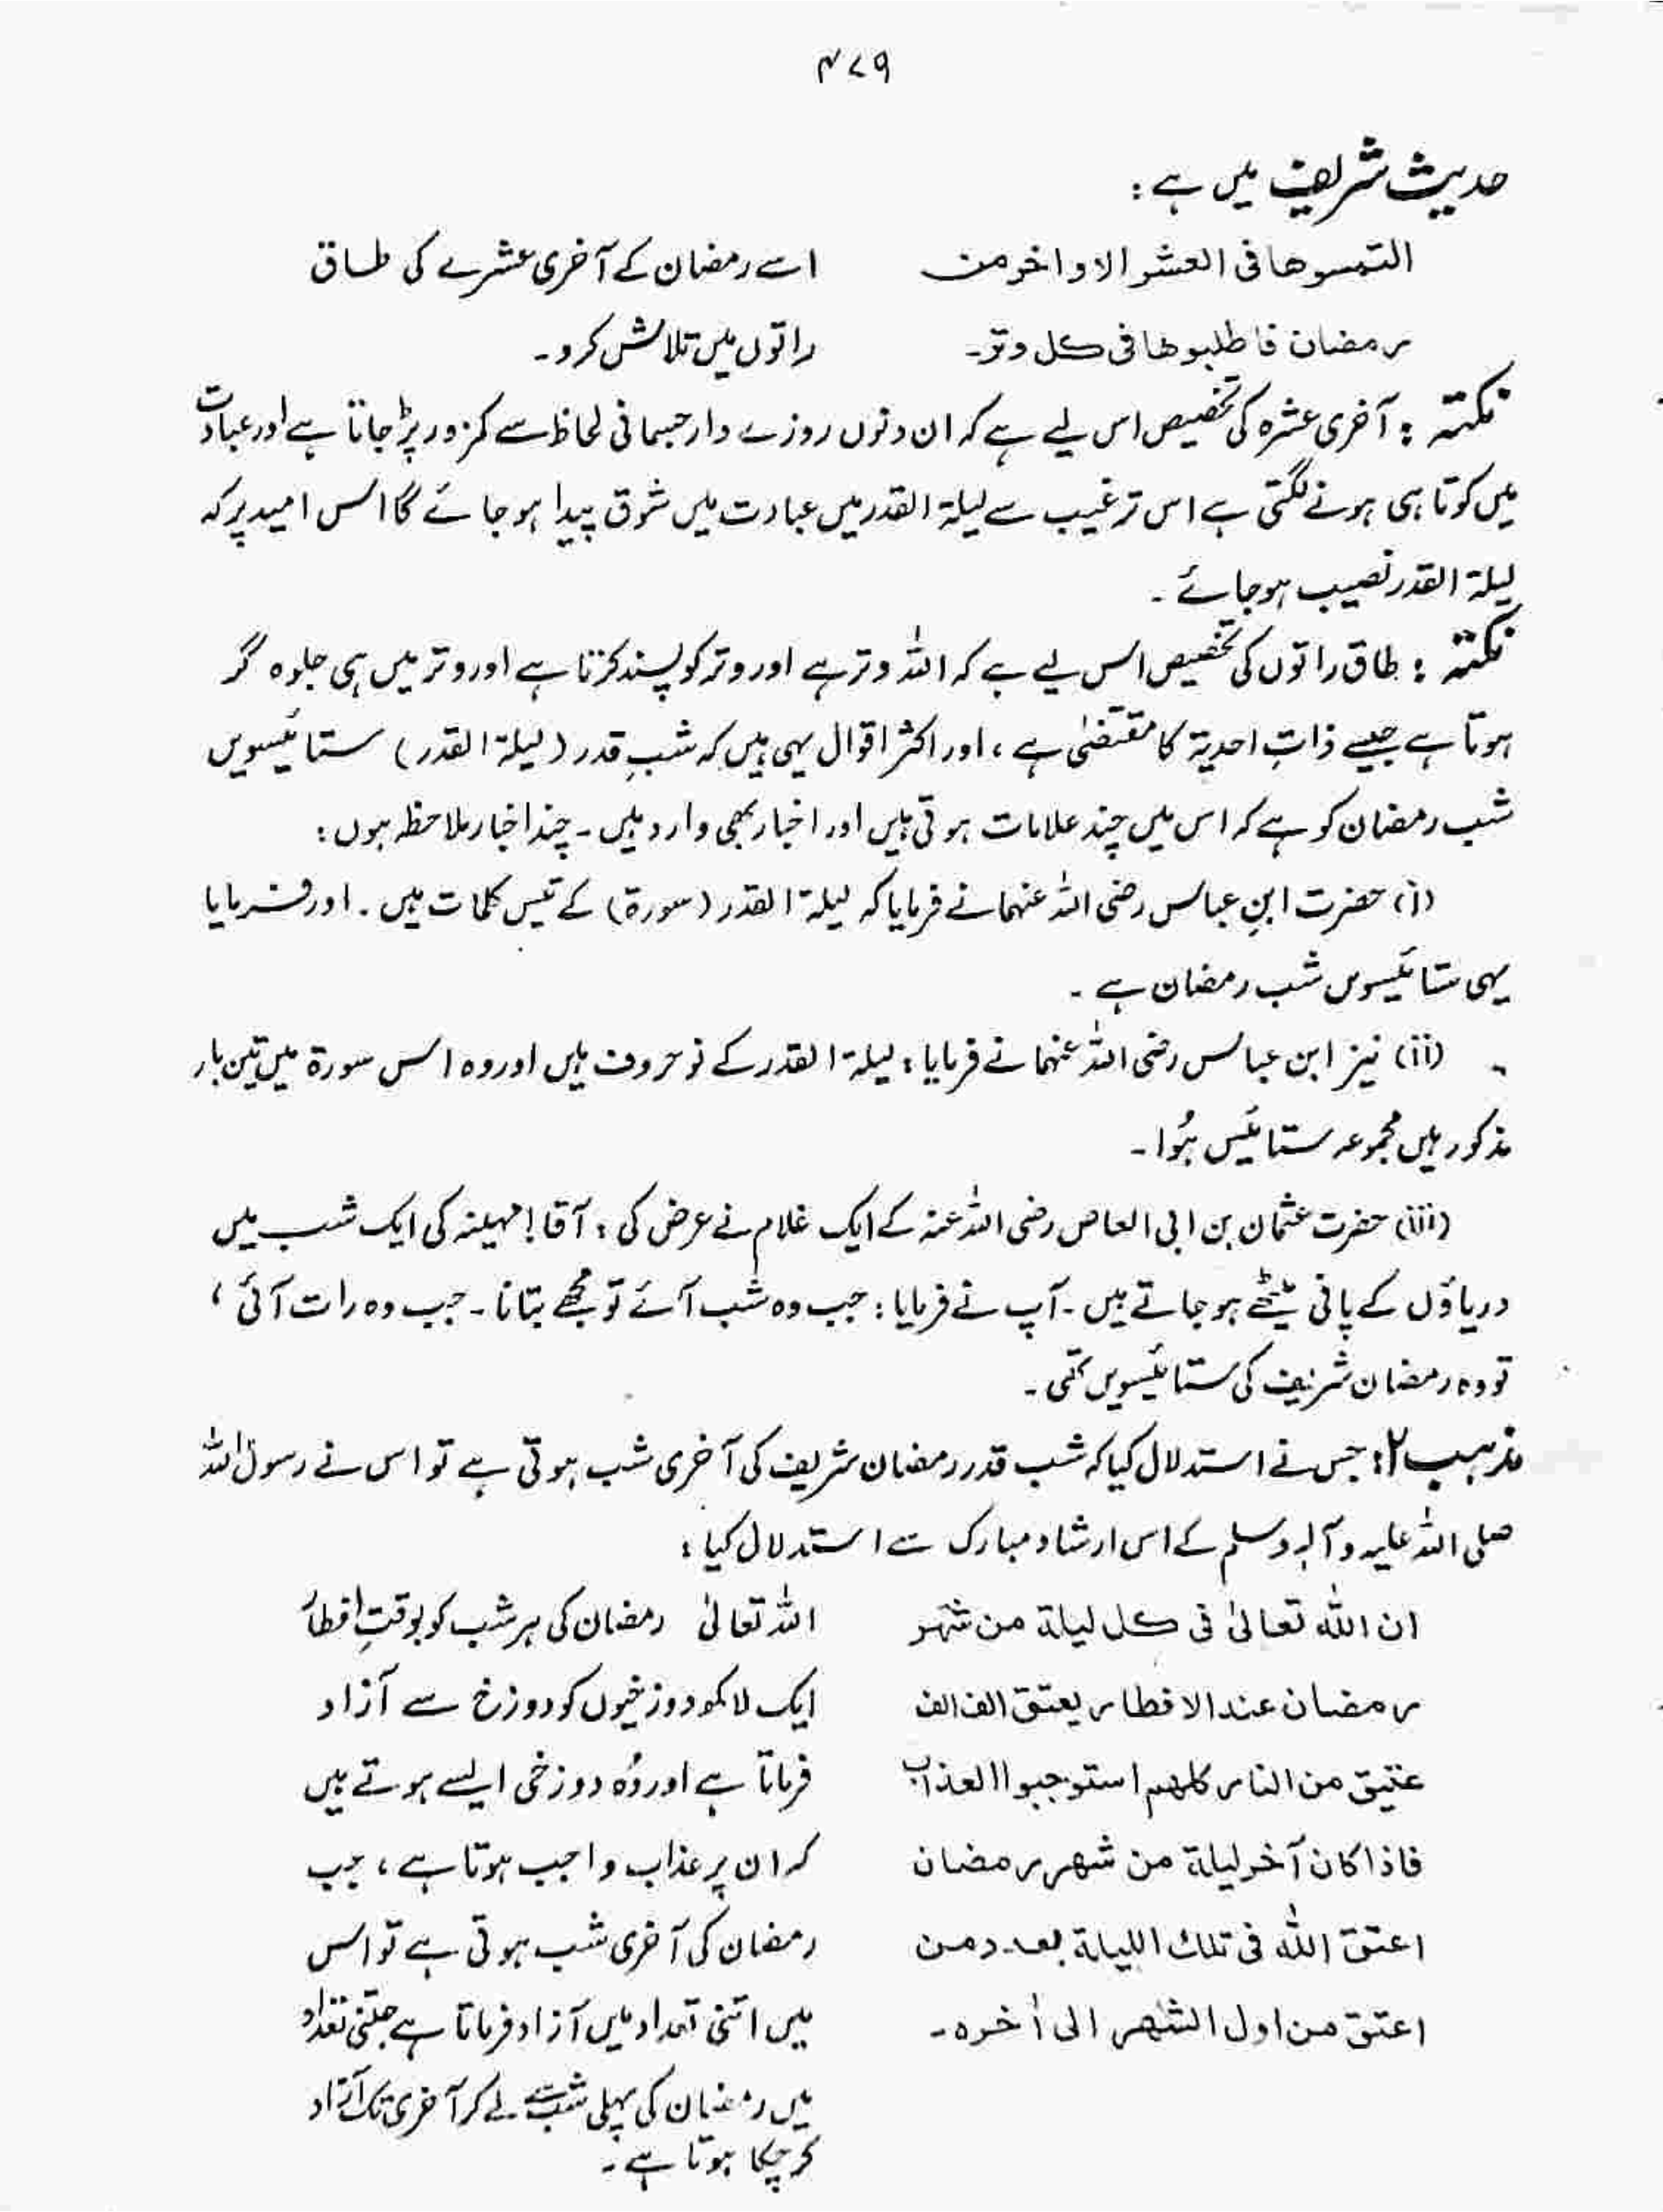 ۴۷۹
حدیث شریف میں ہے :
التمسوها فی العشر الاواخر من
رمضان فاطلبوها فی کل وتر۔
اسے رمضان کے آخری عشرے کی طاق
راتوں میں تلاش کرو۔
نکتہ : آخری عشرہ کی تخصیص اس لیے ہے کہ ان دنوں روزے دار جسمانی لحاظ سے کمزور پڑ جاتا ہے اور عبادت
میں کوتاہی ہونے لگتی ہے اس ترغیب سے لیلۃ القدر میں عبادت میں شوق پیدا ہو جائے گا اس امید پر کہ
لیلۃ القدر نصیب ہو جائے ۔
نکتہ : طاق راتوں کی تخصیص اس لیے ہے کہ اللہ وتر ہے اور وتر کو پسند کرتا ہے اور وتر میں ہی جلوہ گر
ہوتا ہے جیسے ذاتِ احدیۃ کا مقتضیٰ ہے ، اور اکثر اقوال یہی ہیں کہ شبِ قدر (لیلۃ القدر) ستائیسویں
شب رمضان کو ہے کہ اس میں چند علامات ہوتی ہیں اور اخبار بھی وارد ہیں ۔ چند اخبار ملاحظہ ہوں :
(i) حضرت ابنِ عباس رضی اللہ عنہما نے فرمایا کہ لیلۃ القدر (سورۃ) کے تیس کلمات ہیں ۔ اور فرمایا
یہی ستائیسویں شب رمضان ہے ۔
(ii) نیز ابن عباس رضی اللہ عنہما نے فرمایا : لیلۃ القدر کے نو حروف ہیں اور وہ اس سورۃ میں تین بار
مذکور ہیں مجموعہ ستائیس ہُوا ۔
(iii) حضرت عثمان بن ابی العاص رضی اللہ عنہ کے ایک غلام نے عرض کی : آقا ! مہینہ کی ایک شب میں
دریاؤں کے پانی میٹھے ہو جاتے ہیں ۔ آپ نے فرمایا : جب وہ شب آئے تو مجھے بتانا ۔ جب وہ رات آئی ،
تو وہ رمضان شریف کی ستائیسویں تھی ۔
مذہب ۲ : جس نے استدلال کیا کہ شب قدر رمضان شریف کی آخری شب ہوتی ہے تو اس نے رسول اللہ
صلی اللہ علیہ وآلہ وسلم کے اس ارشاد مبارک سے استدلال کیا :
ان اللہ تعالیٰ فی کل لیلة من شهر
رمضان عند الافطار یعتق الف الف
عتیق من النار کلهم استوجبوا العذاب
فاذا کان آخر لیلة من شهر رمضان
اعتق اللہ فی تلک اللیلة بعدد من
اعتق من اول الشهر الی اٰخره ۔
اللہ تعالیٰ رمضان کی ہر شب کو بوقتِ افطار
ایک لاکھ دوزخیوں کو دوزخ سے آزاد
فرماتا ہے اور وُہ دوزخی ایسے ہوتے ہیں
کہ ان پر عذاب واجب ہوتا ہے ، جب
رمضان کی آخری شب ہوتی ہے تو اس
میں اتنی تعداد میں آزاد فرماتا ہے جتنی تعداد
میں رمضان کی پہلی شب سے لے کر آخری تک آزاد
کر چکا ہوتا ہے ۔